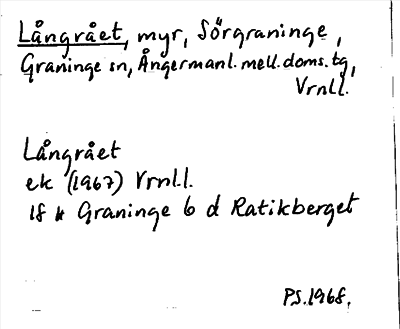 Långrået, myr, Sörgraninge,
Graninge sn, Ångermanl. mell. doms. tg,
Vrnll.
Långrået
ek (1967) Vrnll.
18 k Graninge 6 d Ratikberget
PS. 1968.